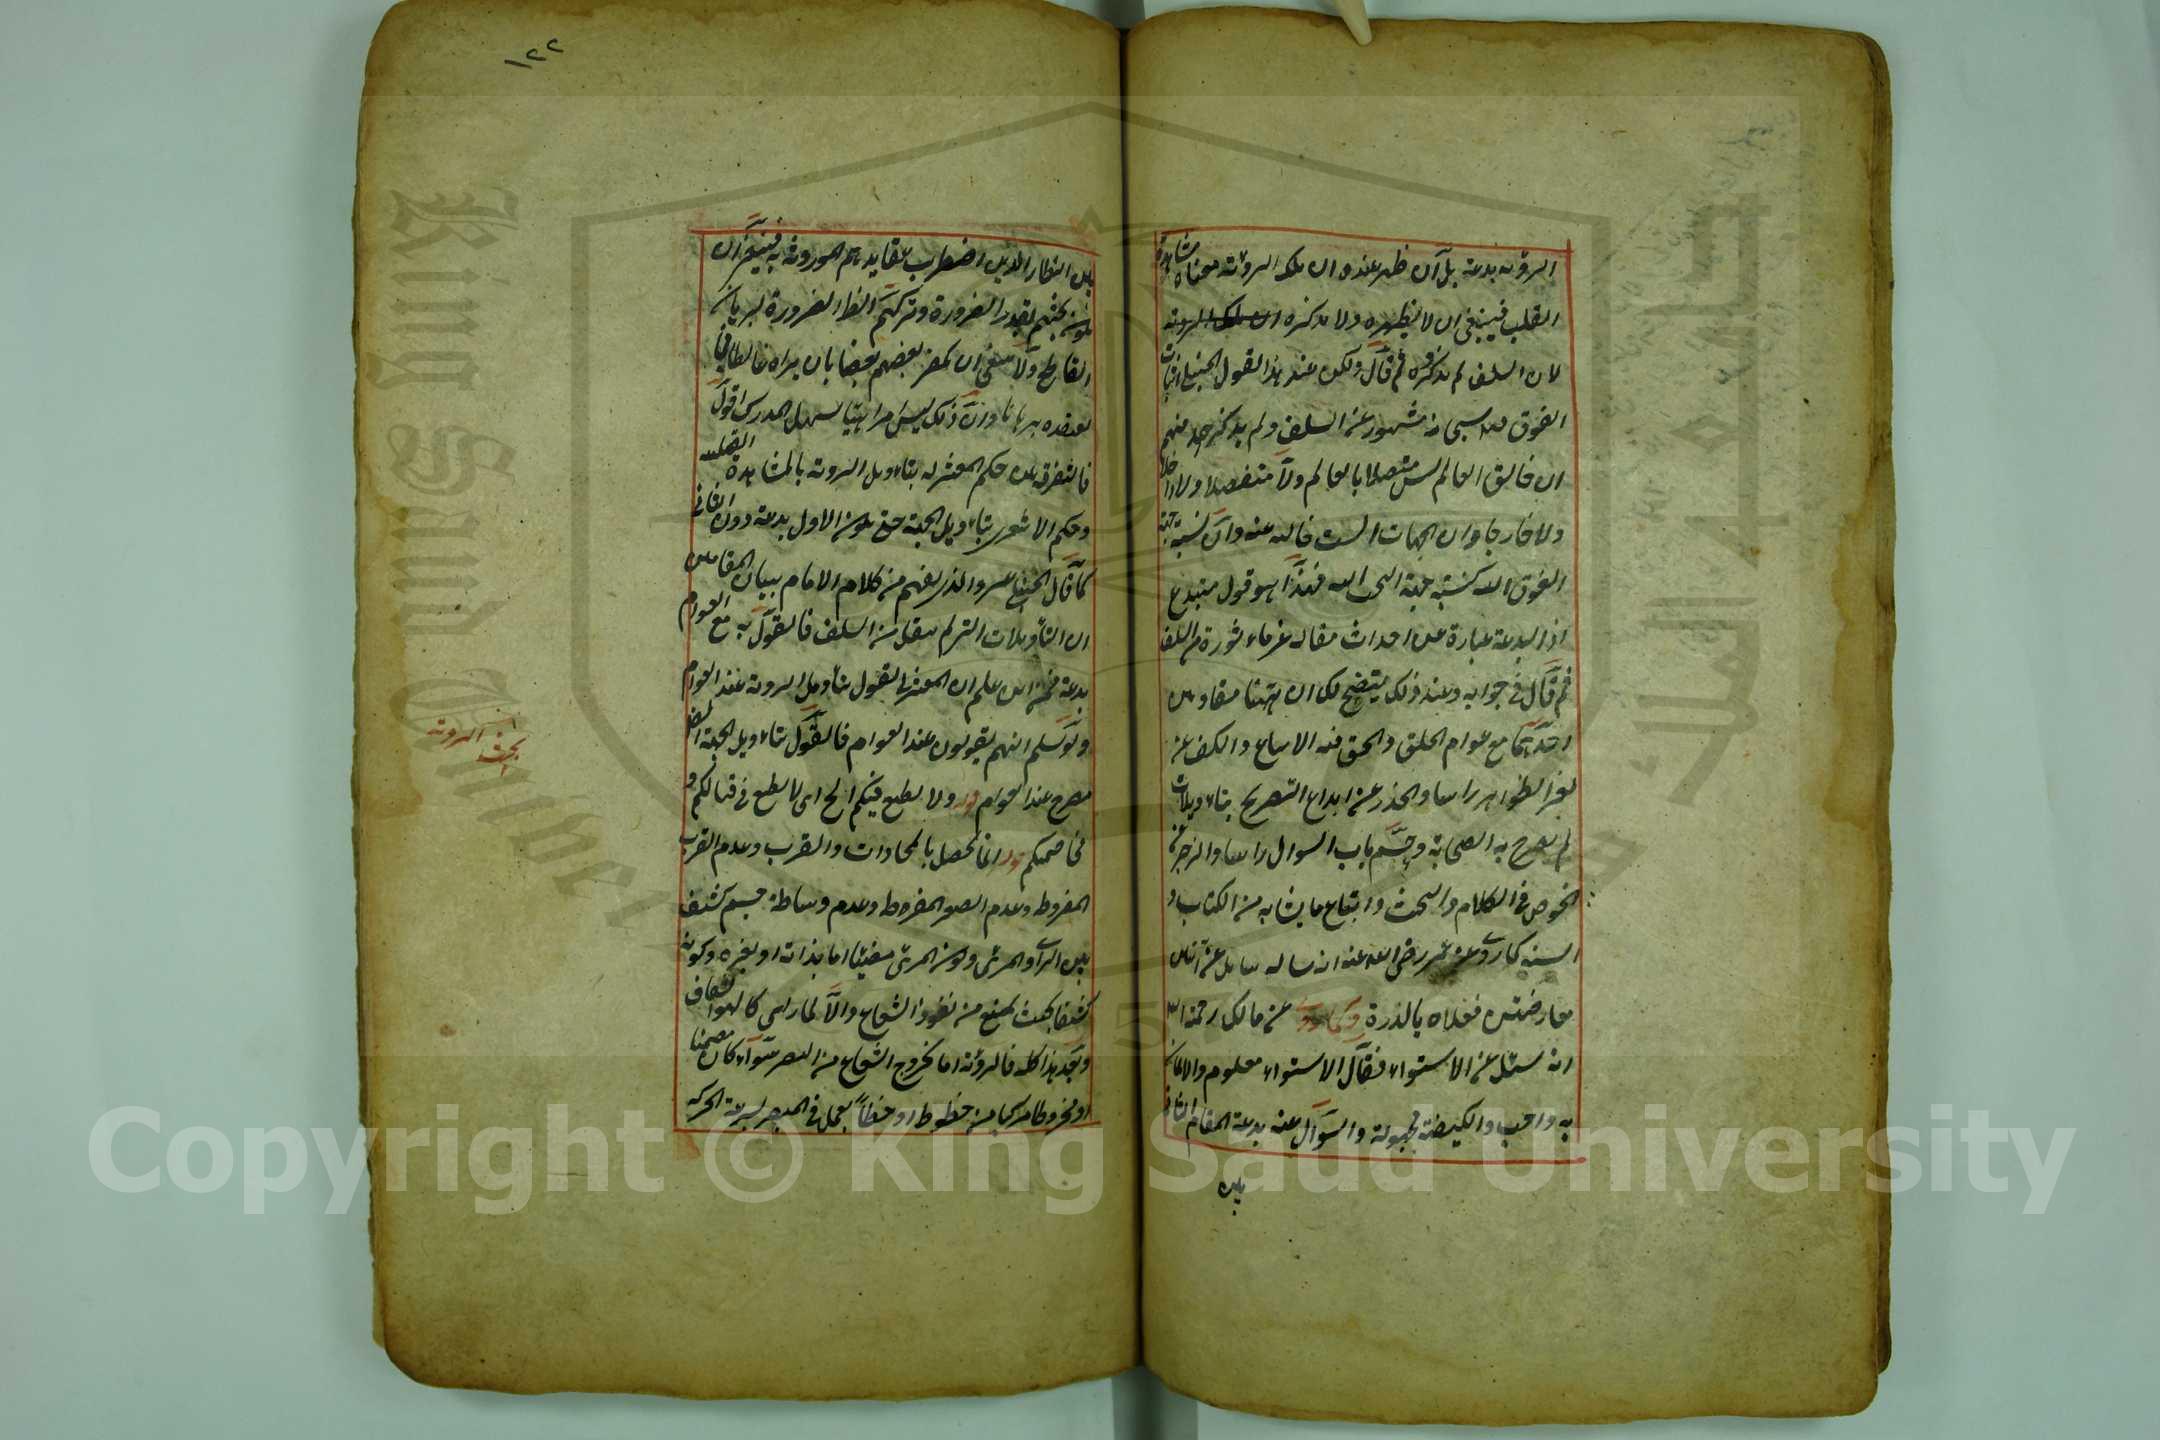 الرؤية بدعة بل ان ظهر عنده ان تلك الروية معناه مشاهدة
القلب فينبغي ان لا يظهره ولا يذكره ان تلك الروية
لان السلف لم يذكروه ثم قال ولكن عند هذا القول الحنبلي اثبات
الفوق لله سبحانه مشهور عن السلف ولم يذكر احد منهم
ان خالق العالم ليس متصلا بالعالم ولا منفصلا ولا داخلا
ولا خارجا وان الجهات الست خالية عنه وان نسبة جهة
الفوق اليه كنسبة جهة التحت اليه فهذا هو قول مبتدع
اذ البدعة عبارة عن احداث مقالة غير ماثورة من السلف
ثم قال في جوابه وعند ذلك يتضح لك ان ههنا مقامين
احدهما مع عوام الخلق والحق فيه الاتباع والكف عن
تغير الظواهر راسا والحذر عن ابداع التصريح بتاويلات
لم يصرح به الصحابة وحسم باب السوال راسا والزجر عن
الخوض في الكلام والبحث واتباع ما تشابه من الكتاب و
السنة كما روي عن عمر رضي الله عنه انه ساله سايل عن آيتين
متعارضتين فعلاه بالدرة وكما روي عن مالك رحمه الله
انه سئل عن الاستواء فقال الاستواء معلوم والايمان
به واجب والكيفية مجهولة والسوال عنه بدعة المقام الثاني
بين
١٢٢
بين النظار الذين اضطرب عقايدهم الموروثة فينبغي ان
يكون بحثهم بقدر الضرورة وتركهم الظاهر لضرورة البرهان
القاطع ولا ينبغي ان يكفر بعضهم بعضا بان يراه غالطا فيما
يعتقده برهانا وان ذلك ليس امرا هينا سهل المدرك اقول
فالتفرقة بين حكم المعتزلة بتاويل الروية بالمشاهدة القلبية
وحكم الاشعري بتاويل الجهة حتى يكون الاول بدعة دون الثاني
كما قال الحنبلي عسر والذي يفهم من كلام الامام ببيان المقامين
ان التأويلات التي لم ينقل من السلف فالقول به مع العوام
بدعة فمن اين علم ان المعتزلي يقول بتاويل الروية عند العوام
ولو سلم انهم يقولون عند العوام فالقول بتاويل الجهة ايضا
مصرح عند العوام قوله ولا نطمع فيكم الخ اي لا نطمع في قتالكم و
مخاصمتكم قوله انما تحصل بالمحاذات والقرب وعدم القرب
المفرط وعدم الصغر المفرط وعدم وساطة جسم كثيف
بين الرآي والمرئي وكون المرئي مضيئا اما بذاته او بغيره وكونه
كثيفا بحيث يمنع من نفوذ الشعاع والا لما رئي كالهواء الشفاف
وبعد هذا كله فالرؤية اما بخروج الشعاع من البصر سواء كان مصمتا
او مخروطا مركبا من خطوط او خطاً يعمل في المبصر بسرعة الحركة
بحث الروية
King Saud University
Copyright © King Saud University